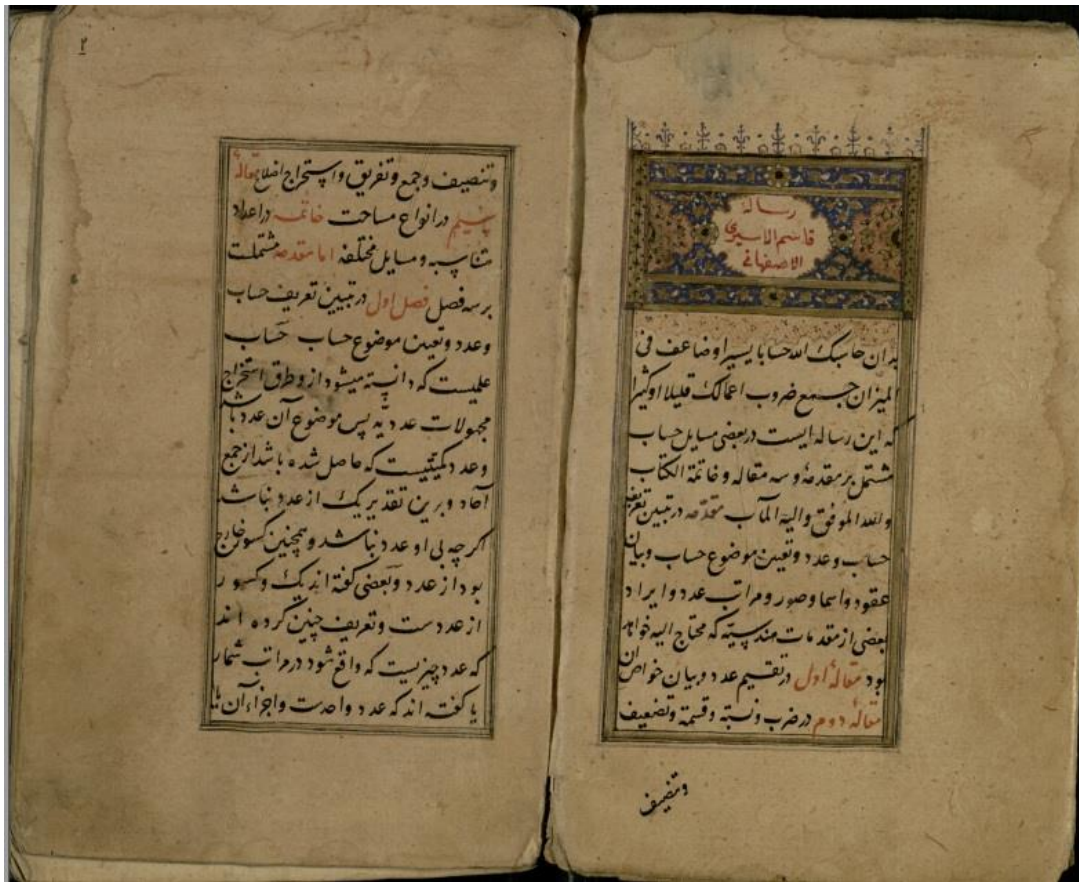 رسالة
قاسم الاسيری
الاصفهانی
بدان حاسبک الله حسابا یسیرا و ضاعف فی
المیزان جمیع ضروب اعمالک قلیلا او کثیرا
که این رساله ایست در بعضی مسایل حساب
مشتمل بر مقدمهٔ و سه مقاله و خاتمة الکتاب
والله الموفق والیه المآب مقدمه در تبیین تعریف
حساب و عدد و تعیین موضوع حساب و بیان
عقود و اسما و صور و مراتب عدد و ایراد
بعضی از مقدمات هندسیّه که محتاج الیه خواهد
بود مقالهٔ اول در تقسیم عدد و بیان خواص آن
مقالهٔ دوم در ضرب و نسبة و قسمة و تضعیف
و تنصیف
۲
و تنصیف و جمع و تفریق و استخراج اضلاع مقالهٔ
سیم در انواع مساحت خاتمه در اعداد
متناسبه و مسایل مختلفه اما مقدمه مشتملست
بر سه فصل فصل اول در تبیین تعریف حساب
و عدد و تعیین موضوع حساب حساب
علمیست که دانسته میشود ازو طرق استخراج
مجهولات عددیّه پس موضوع آن عدد باشد
و عدد کمیتیست که حاصل شده باشد از جمع
آحاد و برین تقدیر یک از عدد نباشد
اکر چه بی او عدد نباشد و همچنین کسور خارج
بود از عدد و بعضی کفته اند یک و کسور
از عددست و تعریف چنین کرده اند
که عدد چیزیست که واقع شود در مراتب شمار
یا کفته اند که عدد واحدست و اجزاء آن یا